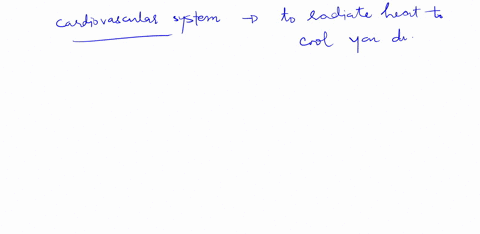 cardiovascular system → to radiate heat to
cool you do